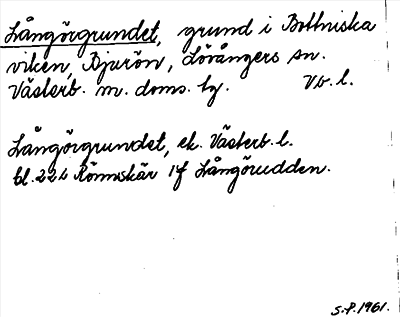 Långörgrundet, grund i Bottniska
viken, Bjurön, Lövångers sn.
Västerb. m. doms. tg. Vb. l.
Långörgrundet, ek. Västerb. l.
bl. 22 b Rönnskär 1 f Långörudden.
S.P. 1961.